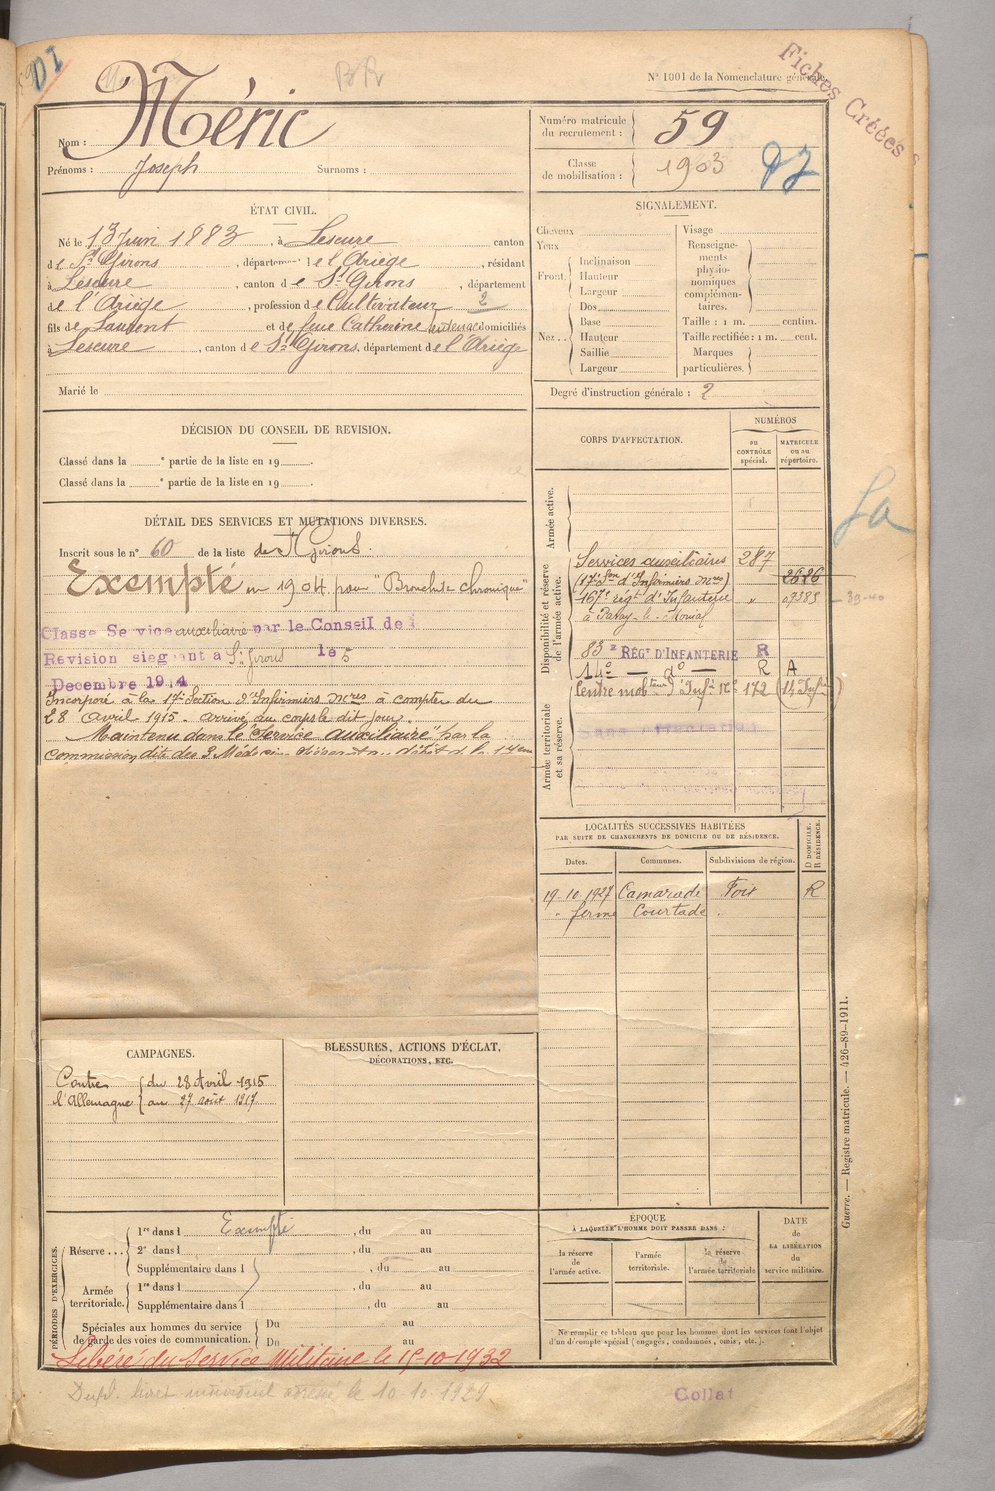 DI
BR
N° 1001 de la Nomenclature générale.
Fiches Créées
Nom : Méric
Prénoms : Joseph Surnoms :
Numéro matricule du recrutement : 59
Classe de mobilisation : 1903
ÉTAT CIVIL.
Né le 13 Juin 1883, à Lescure canton
de St Girons, département de l'Ariège, résidant
à Lescure, canton de St Girons, département
de l'Ariège, profession de Cultivateur 2
fils de Laurent et de feue Catherine domiciliés
à Lescure, canton de St Girons, département de l'Ariège
Marié le
SIGNALEMENT.
Cheveux
Yeux
Front. Inclinaison
Hauteur
Largeur
Nez. Dos
Base
Hauteur
Saillie
Largeur
Visage
Renseignements physionomiques complémentaires.
Taille : 1 m. centim.
Taille rectifiée : 1 m. cent.
Marques particulières.
Degré d'instruction générale : 2
DÉCISION DU CONSEIL DE REVISION.
Classé dans la e partie de la liste en 19 .
Classé dans la e partie de la liste en 19 .
DÉTAIL DES SERVICES ET MUTATIONS DIVERSES.
Inscrit sous le n° 60 de la liste de St Girons.
Exempté en 1904 pour "Bronchite chronique"
Classe Service auxiliaire par le Conseil de
Revision siegeant a St Girons le 5
Decembre 1914
Incorporé à la 17e Section d'Infirmiers Mres à compter du
28 Avril 1915. arrivé au corps le dit jour.
Maintenu dans le "Service auxiliaire" par la
Commission dite des 3 Médecins
CORPS D'AFFECTATION.
NUMÉROS
au CONTRÔLE spécial.
MATRICULE ou au répertoire.
Armée active.
Disponibilité et réserve de l'armée active.
Services auxiliaires 287
(17e Son d'Infirmiers Mres) 2626
167e régt d'Infanterie " 07385 39-40
à Paray-le-Monial
83e RÉGt D'INFANTERIE R
14e — do — R A
Centre mobteur d'Infie No 172 (14 Infie)
Armée territoriale et sa réserve.
Sans affectation
LOCALITÉS SUCCESSIVES HABITÉES
PAR SUITE DE CHANGEMENTS DE DOMICILE OU DE RÉSIDENCE.
Dates. Communes. Subdivisions de région. D DOMICILE. R RÉSIDENCE.
19-10-1927 Camarade Foix R
" ferme Courtade
CAMPAGNES.
Contre l'Allemagne du 28 Avril 1915
au 27 août 1917
BLESSURES, ACTIONS D'ÉCLAT,
DÉCORATIONS, ETC.
PÉRIODES D'EXERCICES.
Réserve ... 1re dans l Exempté, du au
2e dans l , du au
Supplémentaire dans l , du au
Armée territoriale. 1re dans l , du au
Supplémentaire dans l , du au
Spéciales aux hommes du service de garde des voies de communication. Du au
Du au
Libéré du Service Militaire le 15-10-1932
ÉPOQUE
À LAQUELLE L'HOMME DOIT PASSER DANS :
la réserve de l'armée active.
l'armée territoriale.
la réserve de l'armée territoriale
DATE de LA LIBÉRATION du service militaire.
Ne remplir ce tableau que pour les hommes dont les services font l'objet
d'un décompte spécial (engagés, condamnés, omis, etc.).
Guerre. — Registre matricule. — 426-89-1911.
Dupl. livret individuel adressé le 10-10-1929
Collat